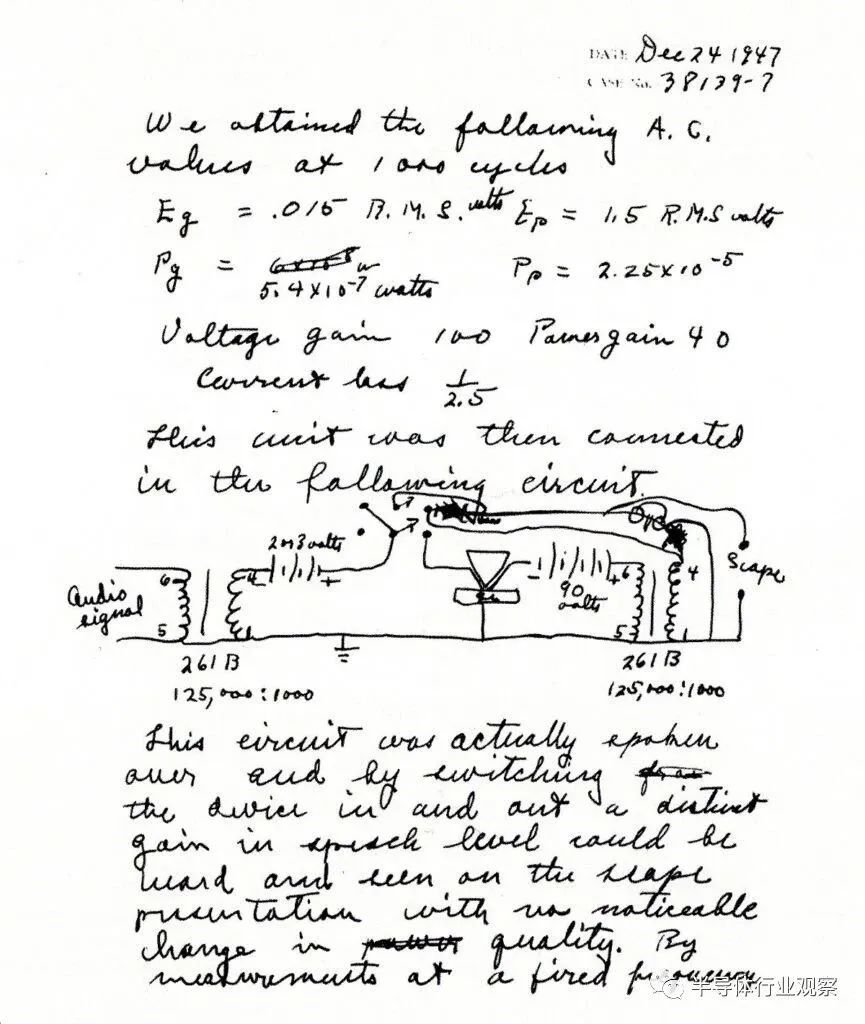 DATE Dec 24 1947
CASE No. 38139-7
We obtained the following A. C.
values at 1000 cycles
Eg = .015 R. M. S. volts Ep = 1.5 R. M. S volts
Pg = 5.4 x 10-7 watts Pp = 2.25 x 10-5
Voltage gain 100 Power gain 40
Current loss 1/2.5
This unit was then connected
in the following circuit.
2 or 3 volts
Audio signal
6
5
4
1
- +
- +
90 volts
6
5
4
1
Scope
261 B
125,000:1000
261 B
125,000:1000
This circuit was actually spoken
over and by switching
the device in and out a distinct
gain in speech level could be
heard and seen on the scope
presentation with no noticeable
change in quality. By
measurements at a fixed frequency
半导体行业观察